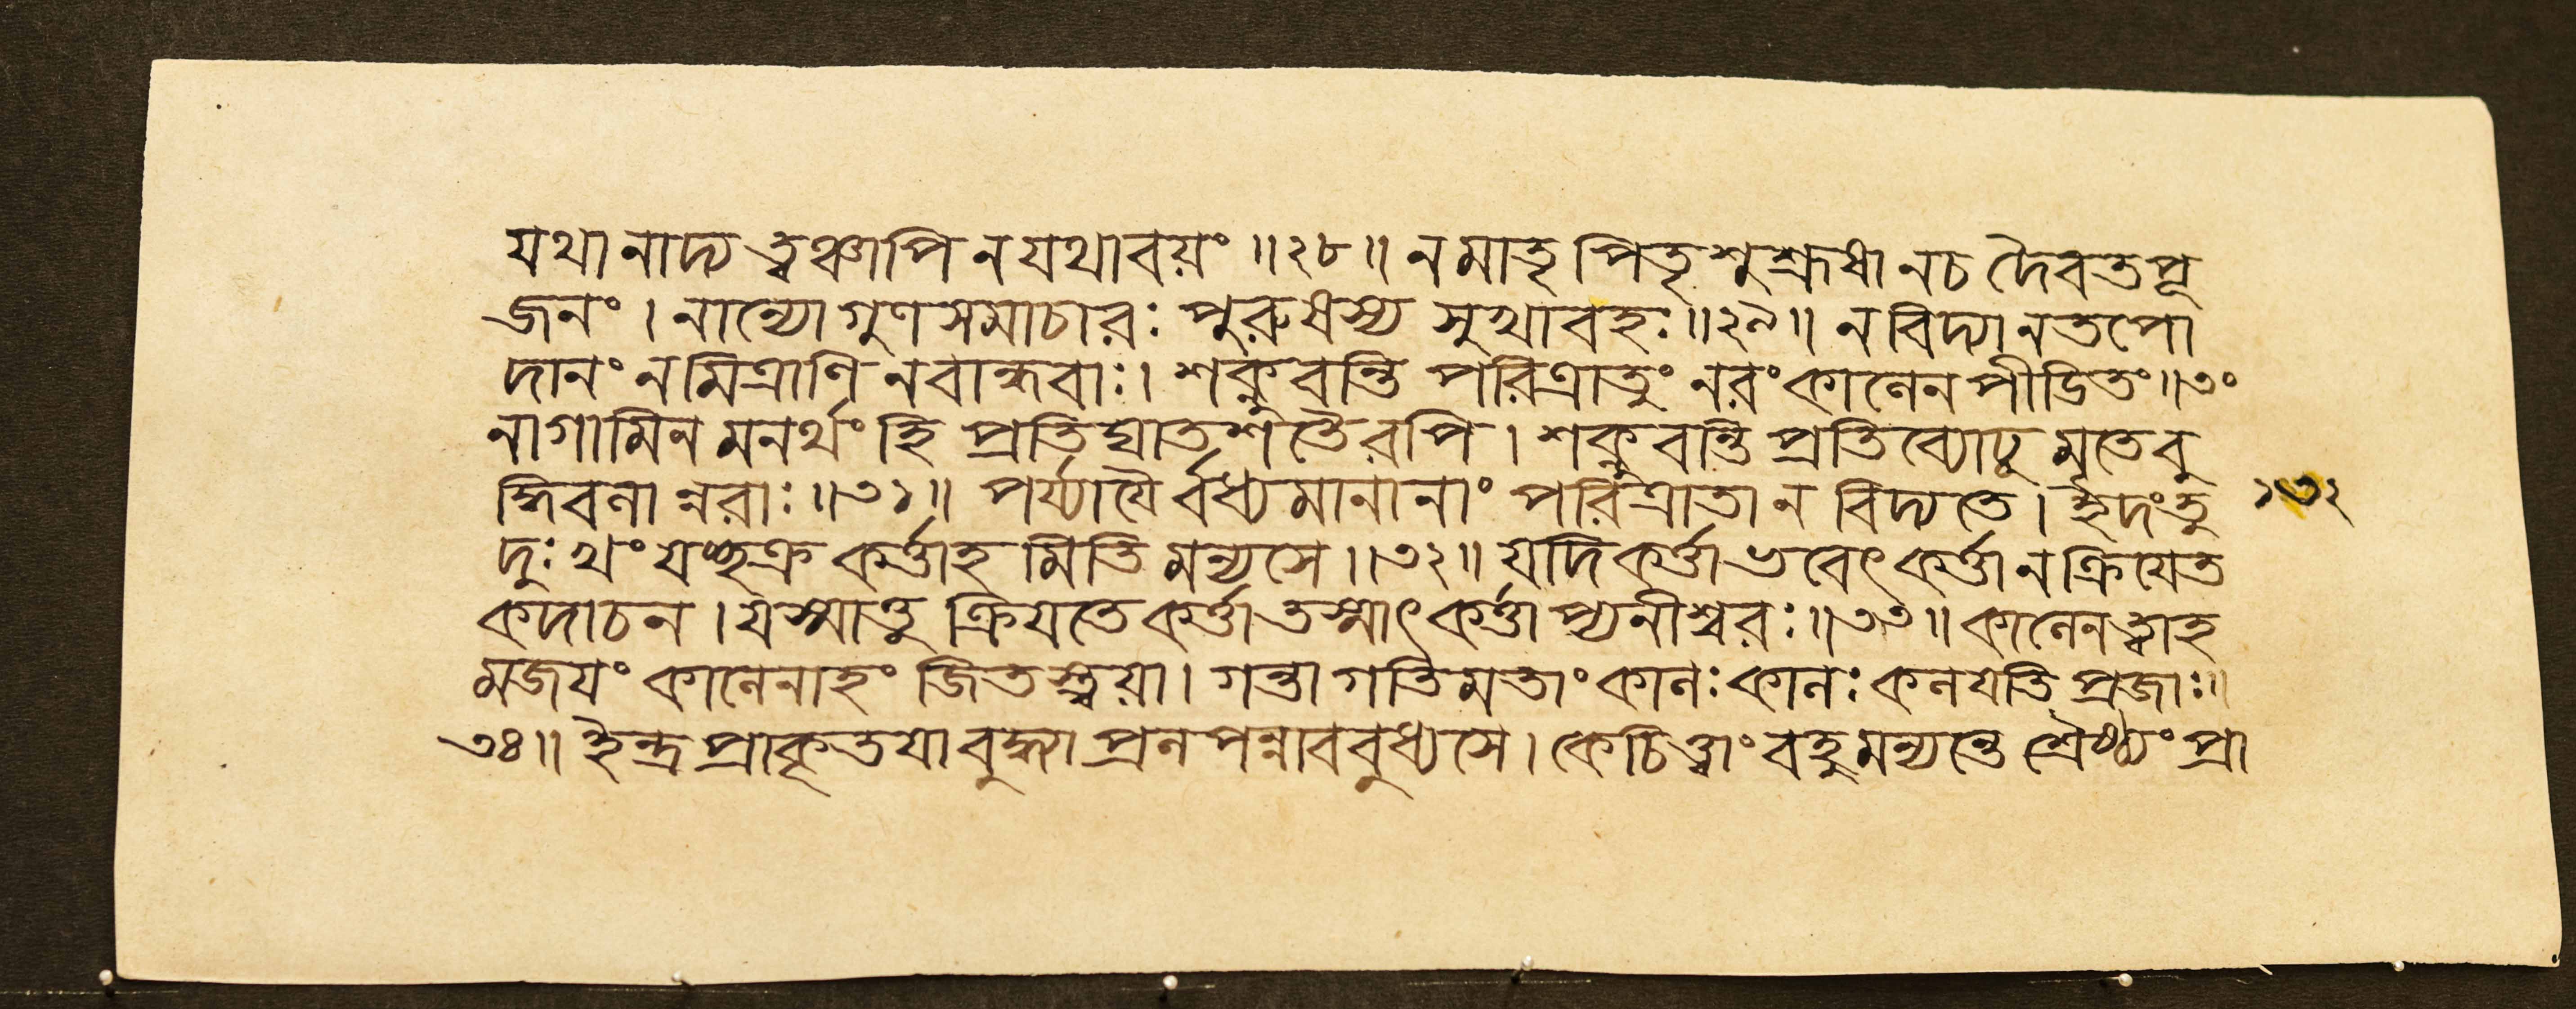 যথা নাদ্য ত্বঞ্চাপি ন যথা বয়ং ॥২৮॥ ন মাতৃ পিতৃ শুশ্রূষা ন চ দৈবত পূ
জনং । নান্যো গুণসমাচারঃ পুরুষস্য সুখাবহঃ ॥২৯॥ ন বিদ্যা ন তপো
দানং ন মিত্রাণি ন বান্ধবাঃ । শক্নুবন্তি পরিত্রাতুং নরং কালেন পীডিতং ॥৩০
নাগামিন মনর্থং হি প্রতিঘাতশতৈরপি । শক্নুবন্তি প্রতিব্যোঢু মৃতে বু
দ্ধিবলা ন্নরাঃ ॥৩১॥ পর্য্যাযৈ র্বধ্যমানানাং পরিত্রাতা ন বিদ্যতে । ইদংতু
দুঃখং যচ্ছক্র কর্ত্তাহ মিতি মন্যসে ॥৩২॥ যদি কর্ত্তা ভবেৎ কর্ত্তা ন ক্রিযেত
কদাচন । যস্মাত্তু ক্রিযতে কর্ত্তা তস্মাৎ কর্ত্তা প্যনীশ্বরঃ ॥৩৩॥ কালেন ত্বাহ
মজযং কালেনাহং জিতস্ত্বয়া । গন্তা গতিমতাং কালঃ কালঃ কলযতি প্রজাঃ ॥
৩৪॥ ইন্দ্র প্রাকৃতযা বুদ্ধ্যা প্রলপন্নাববুধ্যসে । কেচিত্ত্বাং বহুমন্যন্তে শ্রৈষ্ঠ্যং প্রা
১৩২